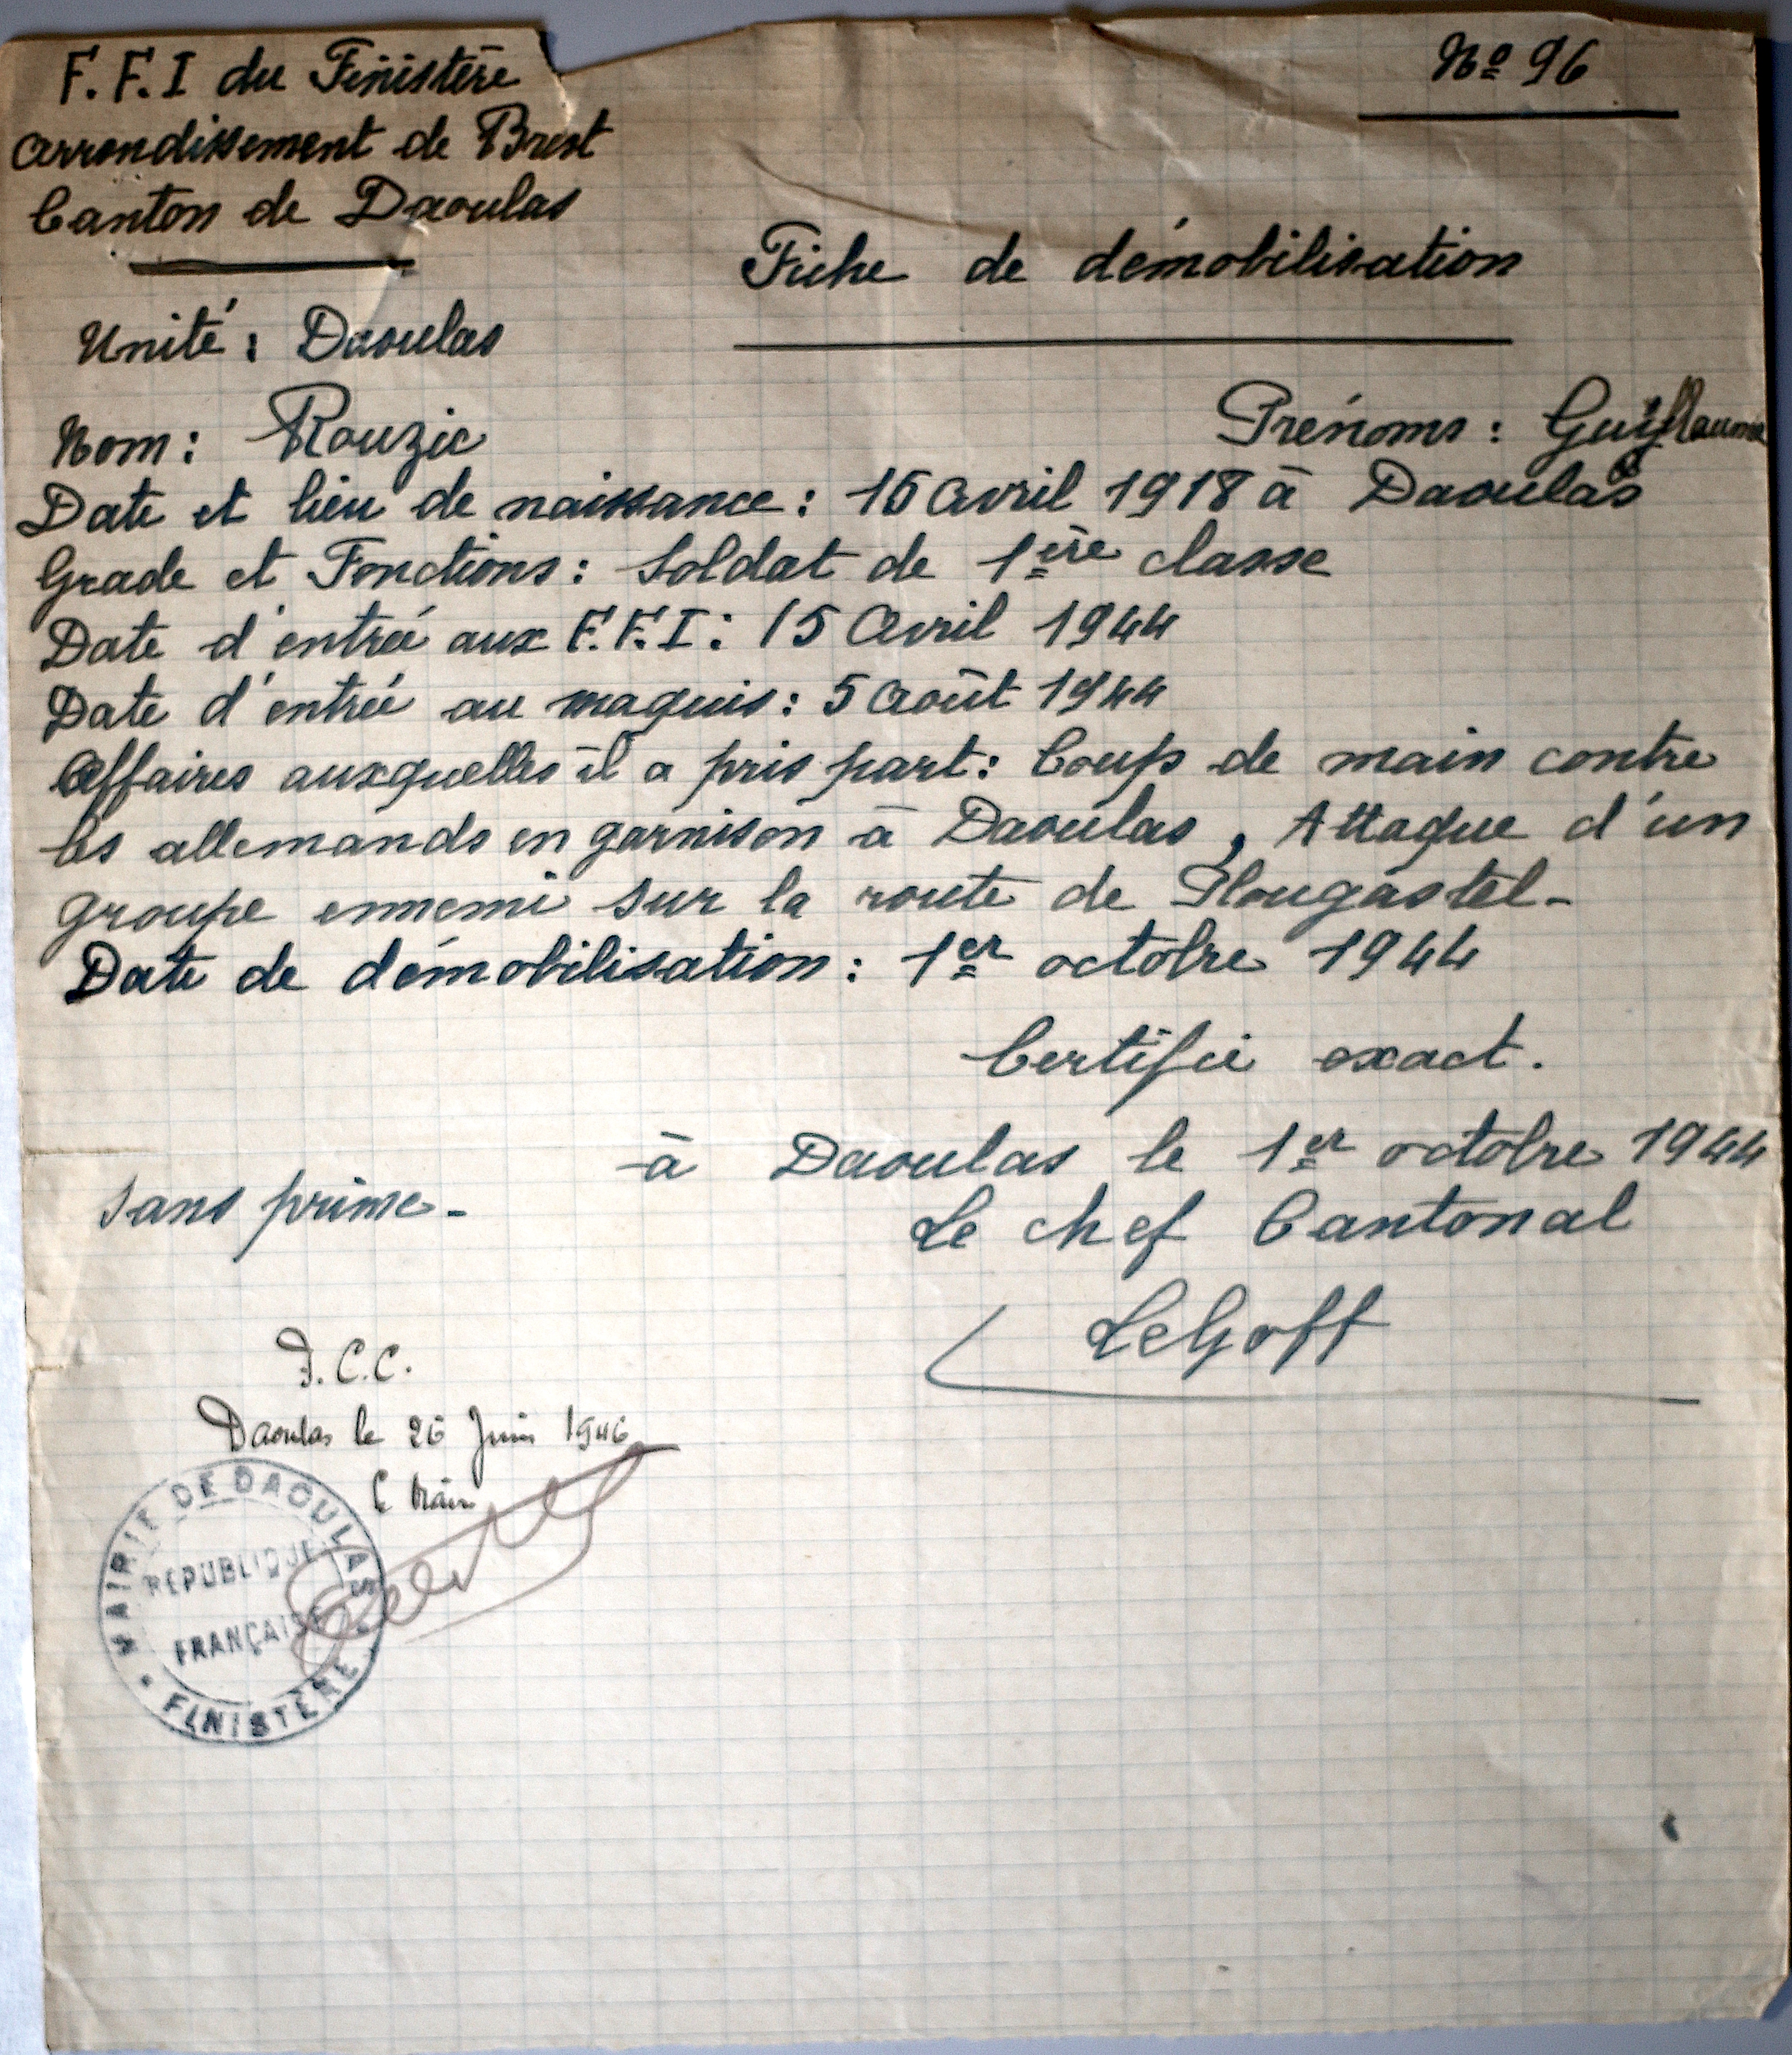 F.F.I du Finistère
Nº 96
Arrondissement de Brest
Canton de Daoulas
Fiche de démobilisation
Unité : Daoulas
Nom : Rouzic
Prénoms : Guillaume
Date et lieu de naissance : 16 Avril 1918 à Daoulas
Grade et Fonctions : Soldat de 1ère classe
Date d'entrée aux F.F.I : 15 Avril 1944
Date d'entrée au maquis : 5 Août 1944
Affaires auxquelles il a pris part : Coup de main contre
les allemands en garnison à Daoulas, Attaque d'un
groupe ennemi sur la route de Plougastel-
Date de démobilisation : 1er octobre 1944
Certifié exact.
à Daoulas le 1er octobre 1944
Sans prime-
Le chef Cantonal
LeGoff
P.C.C.
Daoulas le 26 Juin 1946
Le Maire
MAIRIE DE DAOULAS
REPUBLIQUE
FRANÇAISE
FINISTÈRE